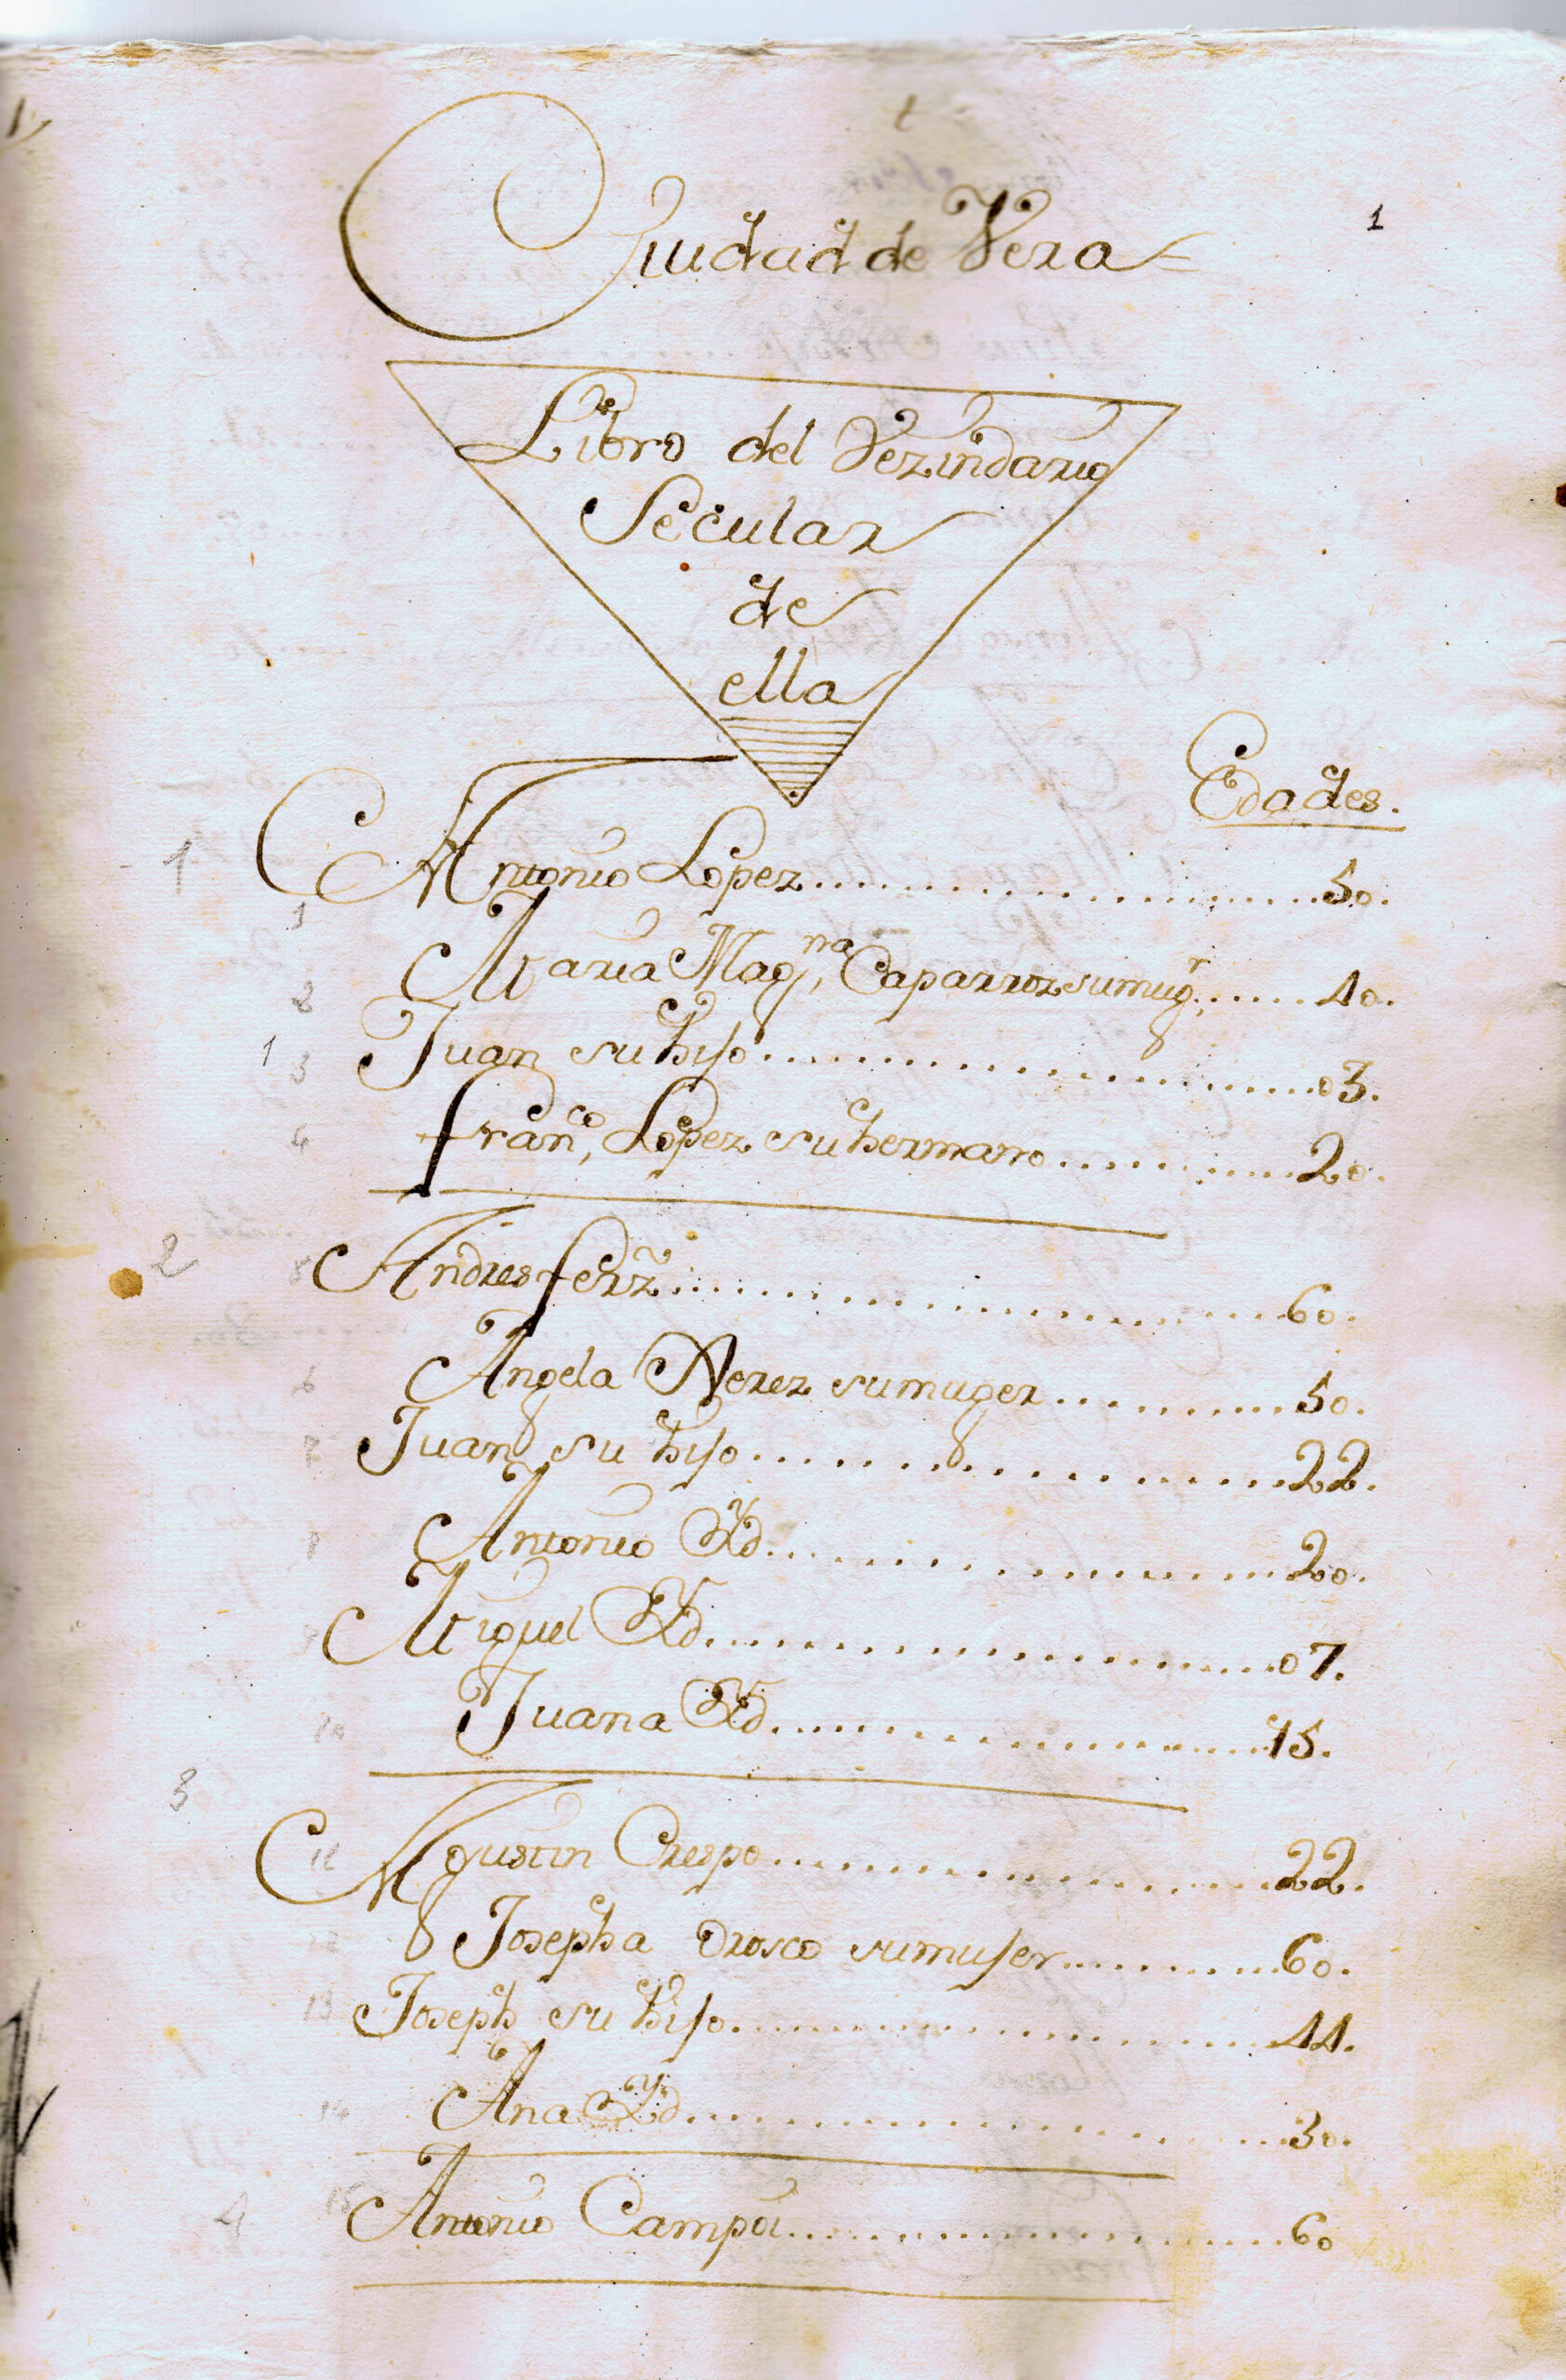 1
Ciudad de Vera
Libro del Vezindario
Secular
de
ella
Edades.
1 Antonio Lopez 50.
1
Maria Mag.na Caparroz su mug.r 40.
2
1 3 Juan su hijo 03.
4 fran.co Lopez su hermano 20.
2 5 Andres ferz 60.
6 Angela Xerez su muger 50.
7 Juan su hijo 22.
8 Antonio Yd 20.
9 Miguel Yd 07.
10 Juana Yd 15.
3
Agustin Crespo 22.
12 Josepha Orosco su mujer 60.
13 Joseph su hijo 44.
14 Ana Yd 30.
4 15 Antonio Campoi 60